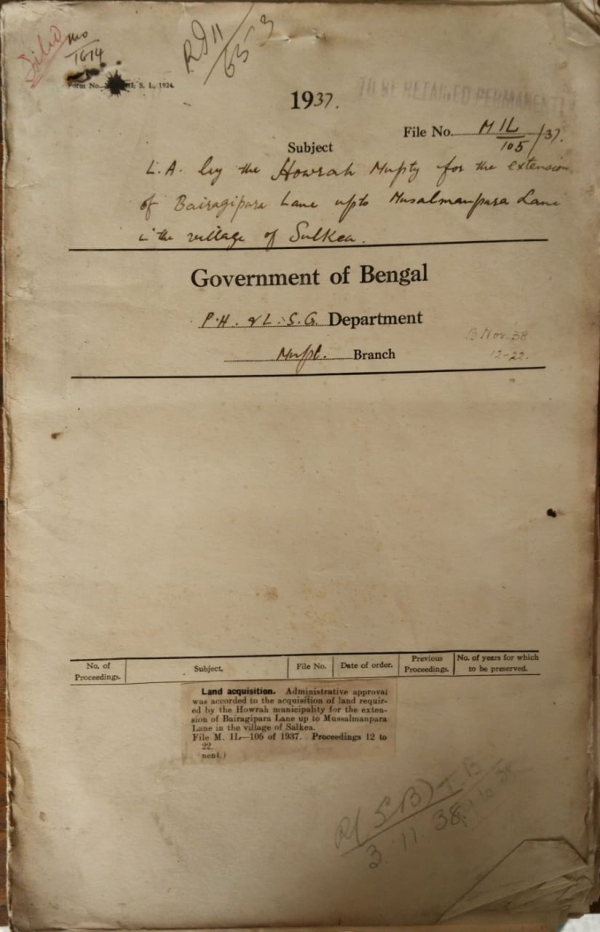 No
1614
RD II
653
Form No. S. L. 1924.
TO BE RETAINED PERMANENTLY
1937.
File No. M 1L/105/37.
Subject
L.A. by the Howrah Mupty for the extension
of Bairagipara Lane upto Musalmanpara Lane
in the village of Sulkea.
Government of Bengal
P.H. & L.S.G. Department
Mupl. Branch
B Nov. 38
12-22.
No. of Proceedings. Subject. File No. Date of order. Previous Proceedings. No. of years for which to be preserved.
Land acquisition. Administrative approval
was accorded to the acquisition of land requir-
ed by the Howrah municipality for the exten-
sion of Bairagipara Lane up to Mussalmanpara
Lane in the village of Salkea.
File M. 1L—105 of 1937. Proceedings 12 to
22.
nent.)
R(SB) I B
3.11.38